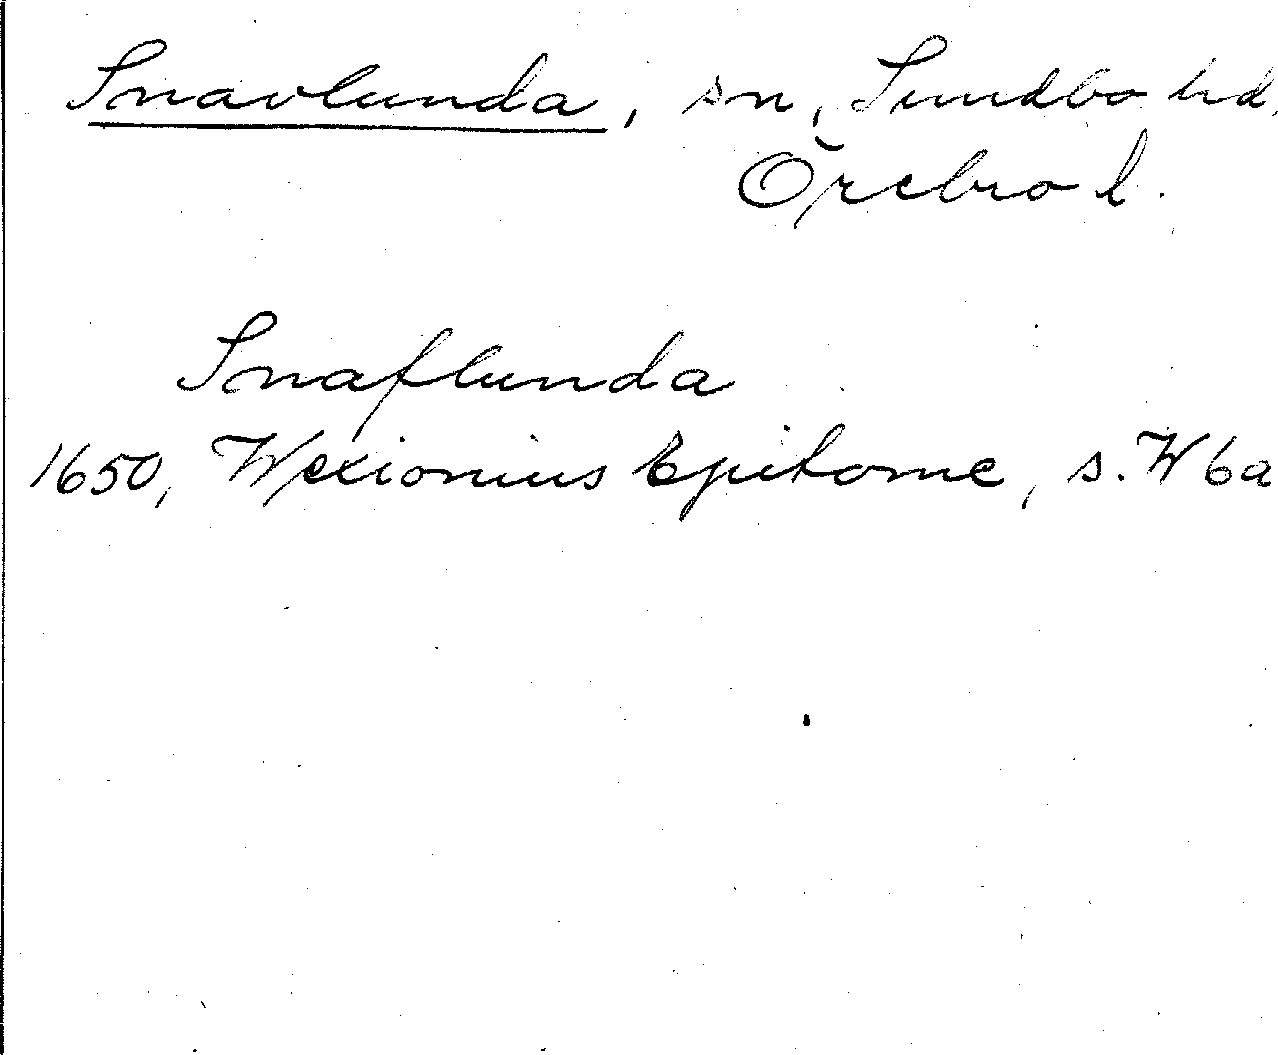 Snavlunda, sn, Sundbo hd,
Örebro l.
Snaflunda
1650, Wexionius Epitome, s. W 6a